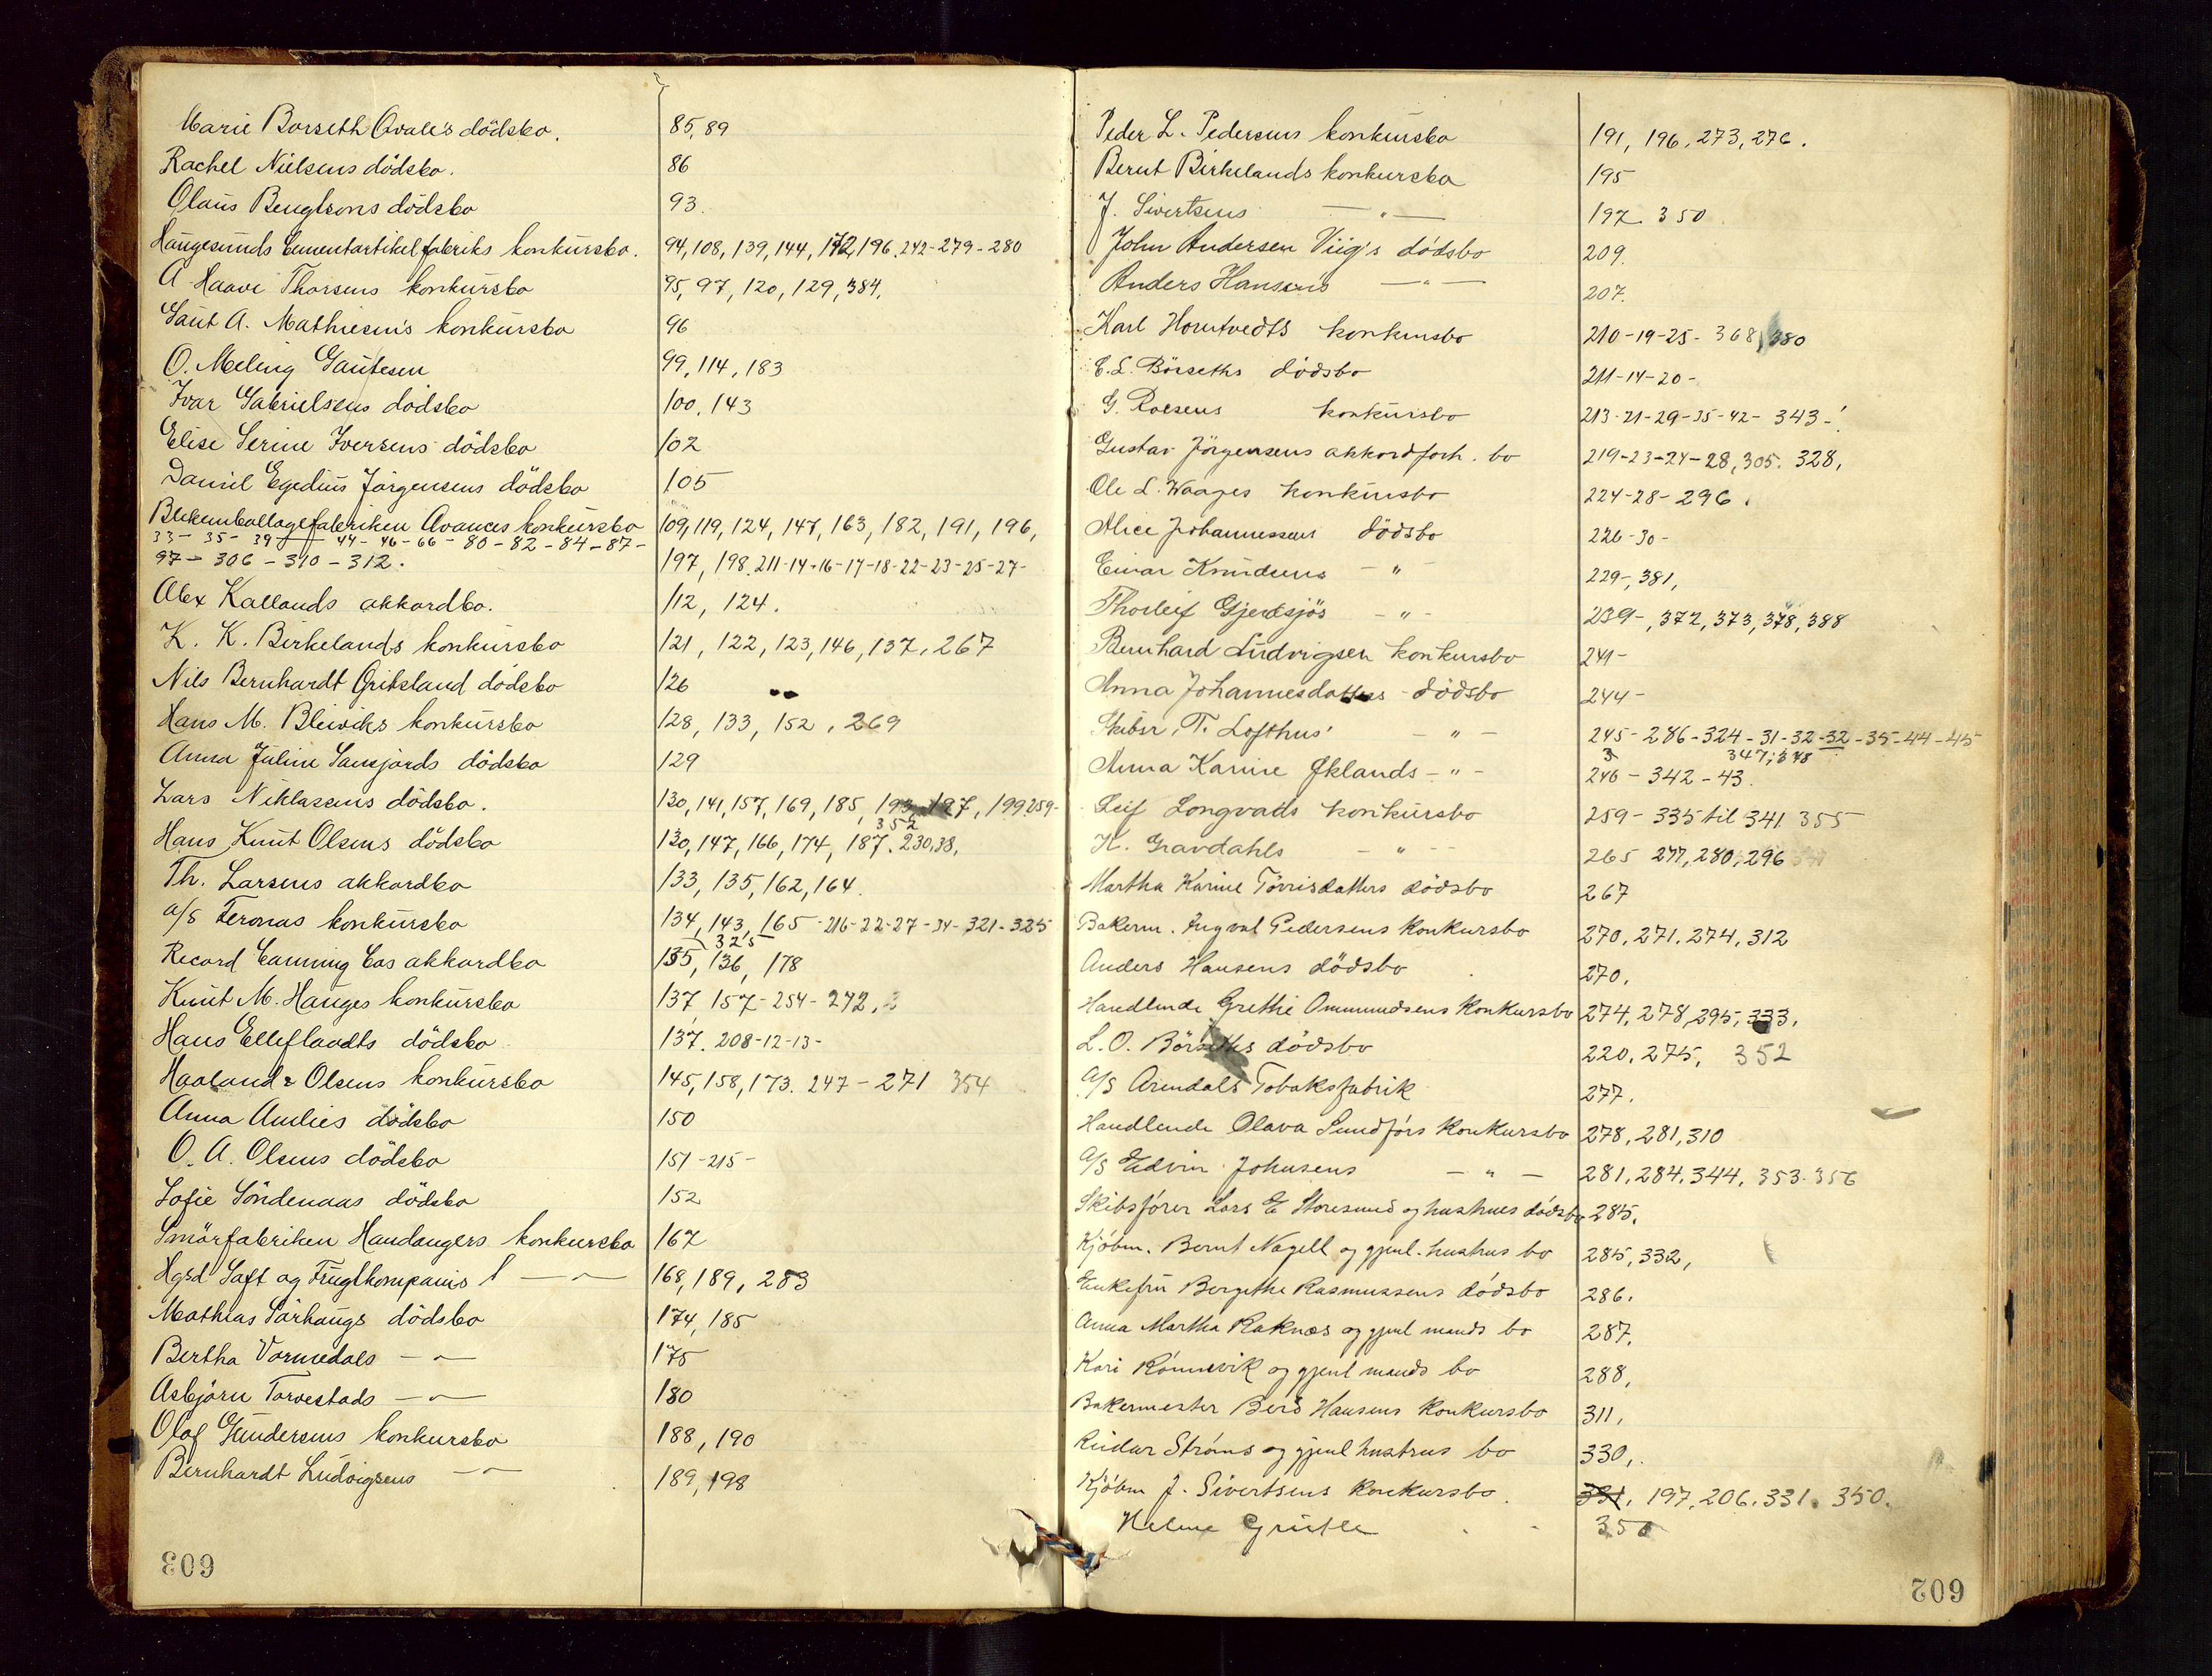 Marie Borseth Qvale's dödsbo. 85, 89
Rachel Nielsens dödsbo. 86
Olaus Bengtsons dödsbo 93.
Haugesunds Cementartikelfabriks konkursbo. 94, 108, 139, 144, 172, 196. 242-279-280
A Haave Thorsens konkursbo 95, 97, 120, 129, 384.
Gaut A. Mathiesens konkursbo 96
O. Meling Gautesen 99, 114, 183
Ivar Gabrielsens dödsbo 100, 143
Elise Serine Iversens dödsbo 102
Daniel Egedius Jörgensens dödsbo 105
Blikemballagefabriken Avances konkursbo 109, 119, 124, 147, 163, 182, 191, 196,
33- 35- 39 44- 46- 66- 80- 82- 84- 87-
97- 306 - 310 - 312. 197, 198. 211-14-16-17-18-22-23-25-27-
Alex Kallands akkordbo. 112, 124.
K. K. Birkelands konkursbo 121, 122, 123, 146, 137, 267
Nils Bernhardt Gritsland dödsbo 126
Hans M. Bleiviks konkursbo 128, 133, 152, 269
Anna Juline dödsbo 129
Lars Niklasens dödsbo. 130, 141, 157, 169, 185, 193, 197, 199. 259-
352
Hans Knut Olsens dödsbo 130, 147, 166, 174, 187. 230, 38,
Th. Larsens akkordbo 133, 135, 162, 164.
a/s Feronas konkursbo 134, 143, 165 -216-22-27-34-321-325
325
Record Canning Cos akkordbo 135, 136, 178
Knut M. Hauges konkursbo 137, 157-254-272.
Hans Elleflaadts dödsbo 137. 208-12-13-
Haaland & Olsens konkursbo 145, 158, 173. 247-271 354
Anna Amlies dödsbo 150
O. A. Olsens dödsbo 151-215-
Sofie Söndenaas dödsbo 152
Smörfabriken Haudangers konkursbo 167
Hgsd Saft og Frugtkompanis — " — 168, 189, 283
Mathias Sörhaugs dödsbo 174, 185
Bertha Vormedals — " 175
Asbjörn Torvestads — " — 180
Olaf Gundersens konkursbo 188, 190
Bernhardt Ludvigsens — " — 189, 198
603
Peder L. Pedersens konkursbo 191, 196, 273, 276.
Bernt Birkelands konkursbo 195
J. Sivertsens — " — 197. 350
John Andersen Viig's dödsbo 209.
Anders Hansens — " — 207.
Karl Horntvedts konkursbo 210-19-25- 368, 380
E. L. Börseths dödsbo 211-14-20-
G. Roesens konkursbo 213-21-29-35-42- 343-
Gustav Jörgensens akkordforh. bo 219-23-24-28, 305. 328,
Ole L. Waages konkursbo 224-28-296.
Alice Johannessens dödsbo 226-30-
Einar Knudsens - " - 229-, 381,
Thorleif Gjerdsjös - " - 239-, 372, 373, 378, 388
Bernhard Ludvigsen konkursbo 241-
Anna Johannesdatters dödsbo 244-
Skibsr. T. Lofthus' - " - 245-286-324-31-32-32-35-44-45
3 347, 348
Anna Karine Öklands - " - 246-342-43.
Leif Longvads konkursbo 259-335 til 341 355
K. Gravdahls - " - 265 277, 280, 296
Martha Karine Törrisdatters dödsbo 267
Bakerm. Ingval Pedersens konkursbo 270, 271, 274, 312
Anders Hansens dödsbo 270.
Handlende Grethe Ommundsens konkursbo 274, 278, 295, 333.
L. O. Börseths dödsbo 220, 275, 352
a/s Arendals Tobaksfabrik 277.
Handlende Olava Sundförs konkursbo 278, 281, 310
a/s Edvin Johnsens — " — 281, 284, 344, 353. 356
Skibsförer Lars E Storesund og hustrues dödsbo 285.
Kjöbm. Bernt Nagell og gjenl. hustrus bo 285, 332,
Enkefru Bergethe Rasmussens dödsbo 286.
Anna Martha Raknes og gjenl mands bo 287.
Kari Rönnevik og gjenl mands bo 288,
Bakermester Berd Hansens konkursbo 311,
Reidar Ströms og gjenl hustrus bo 330,.
Kjöbm J. Sivertsens konkursbo. 331, 197, 206, 331. 350.
Helene 350
602